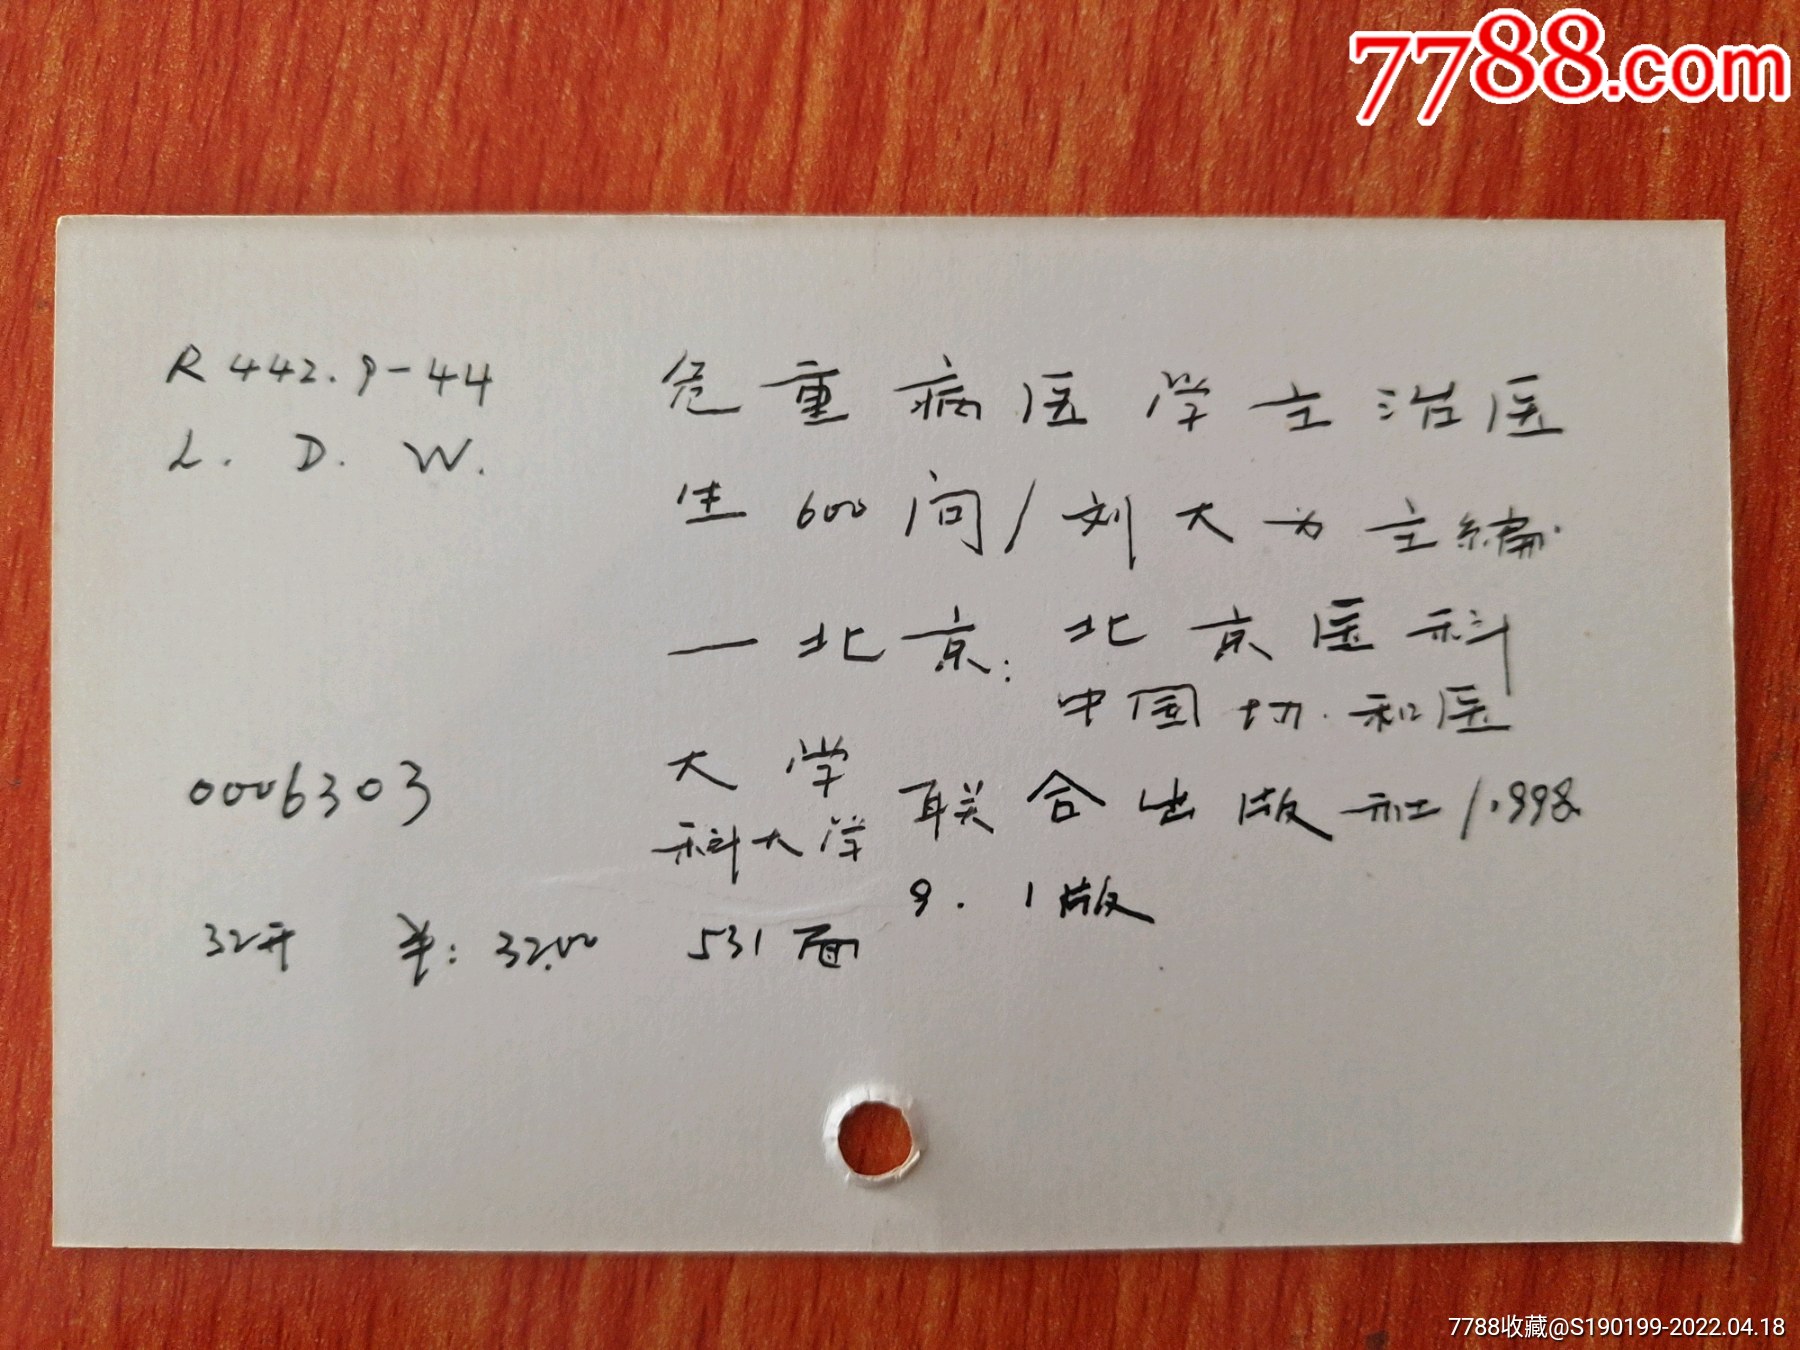 7788.com
R442.9-44
危重病医学主治医
L. D. W.
生600问/刘大为主编.
—北京: 北京医科
中国协和医
0006303
大学
联合出版社/1.998.
科大学
9. 1版
32开 半: 32.00 531面
7788收藏@S190199-2022.04.18